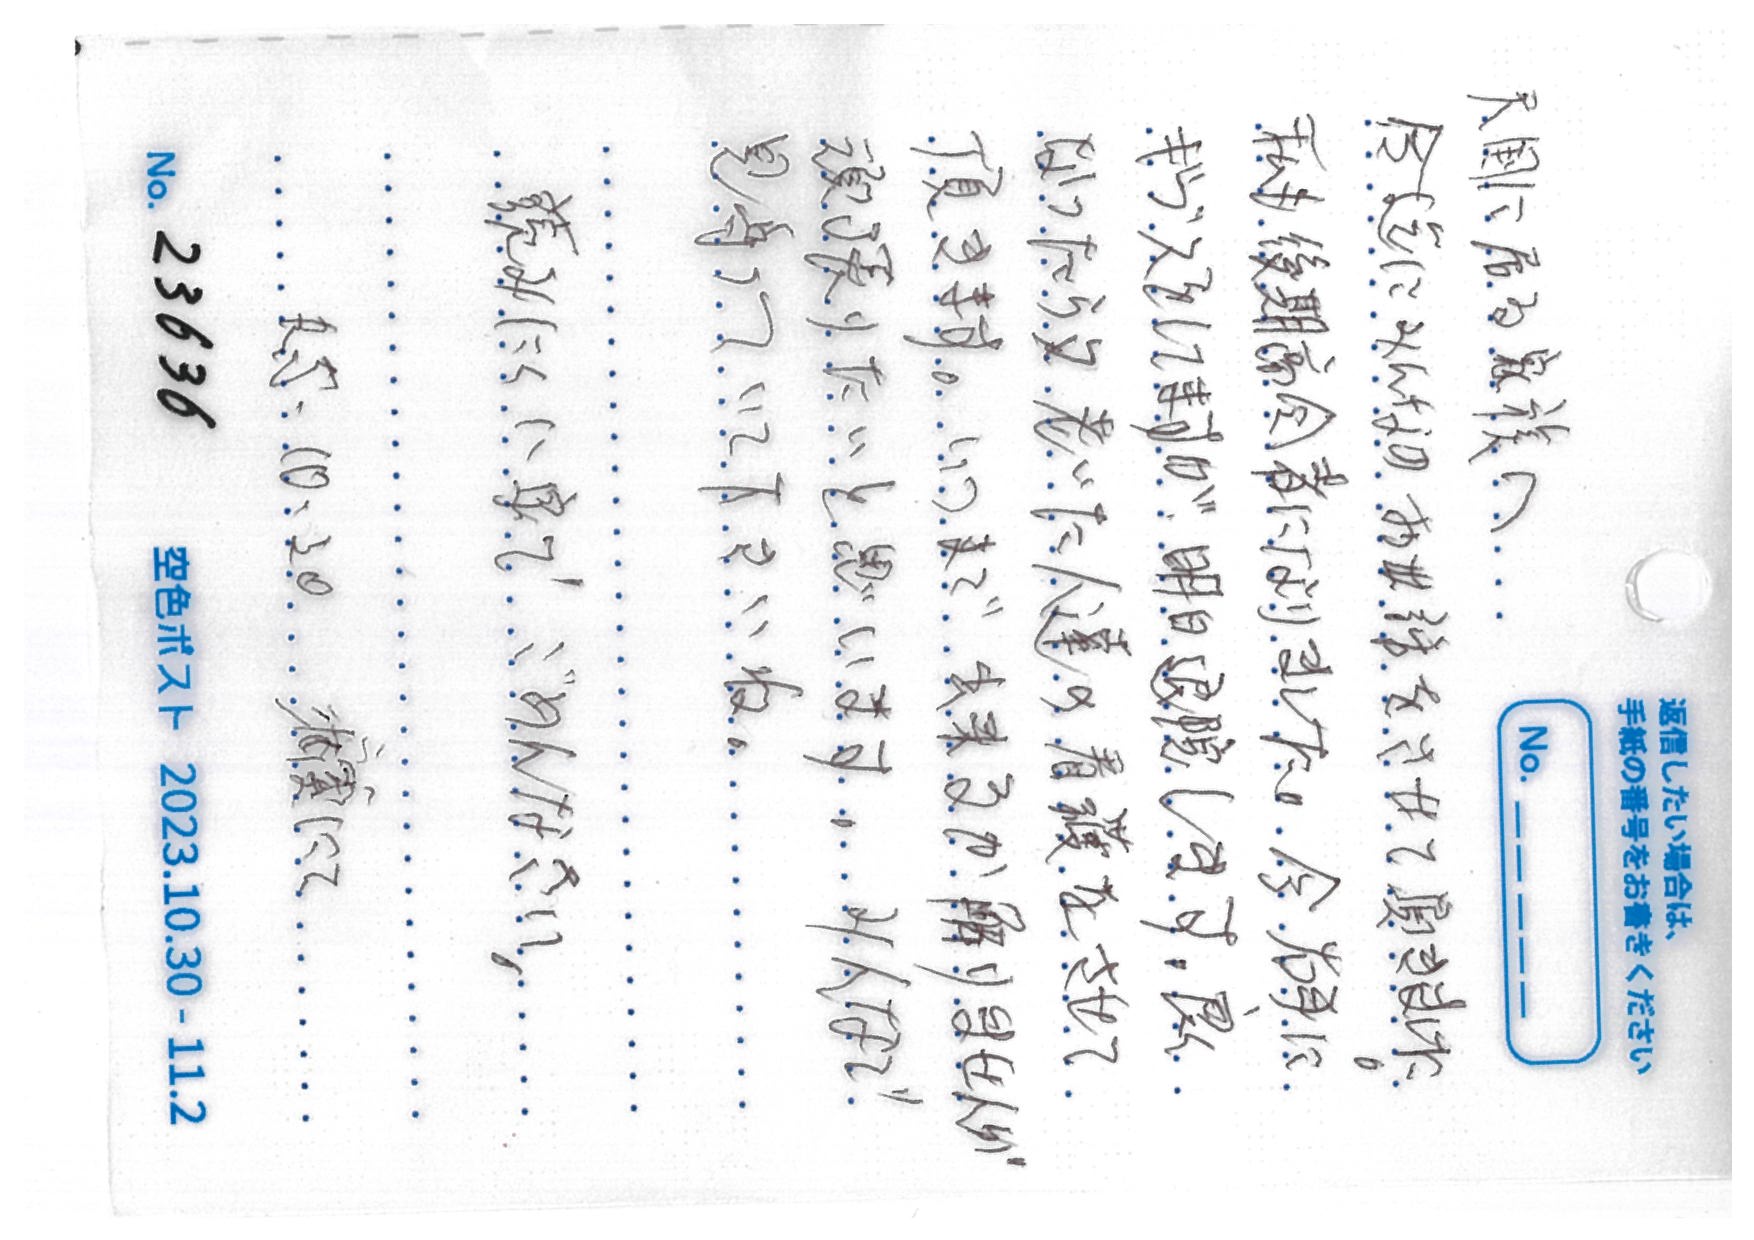 返信したい場合は、
手紙の番号をお書きください
No. _ _ _ _ _
天国に居る家族へ...
今迄にみんなのお世話をさせて頂きました。
私も後期高令者になりました。今右手に
ギブスをしてますが、明日退院します。良く
なったら又老いた人達の看護をさせて
頂きます。いつまで出来るか解りませんが
頑張りたいと思います。みんなで
見守っていて下さいね。
読みにくい字でごめんなさい。
R5.10.30 病室にて
No. 23636 空色ポスト 2023.10.30 - 11.2